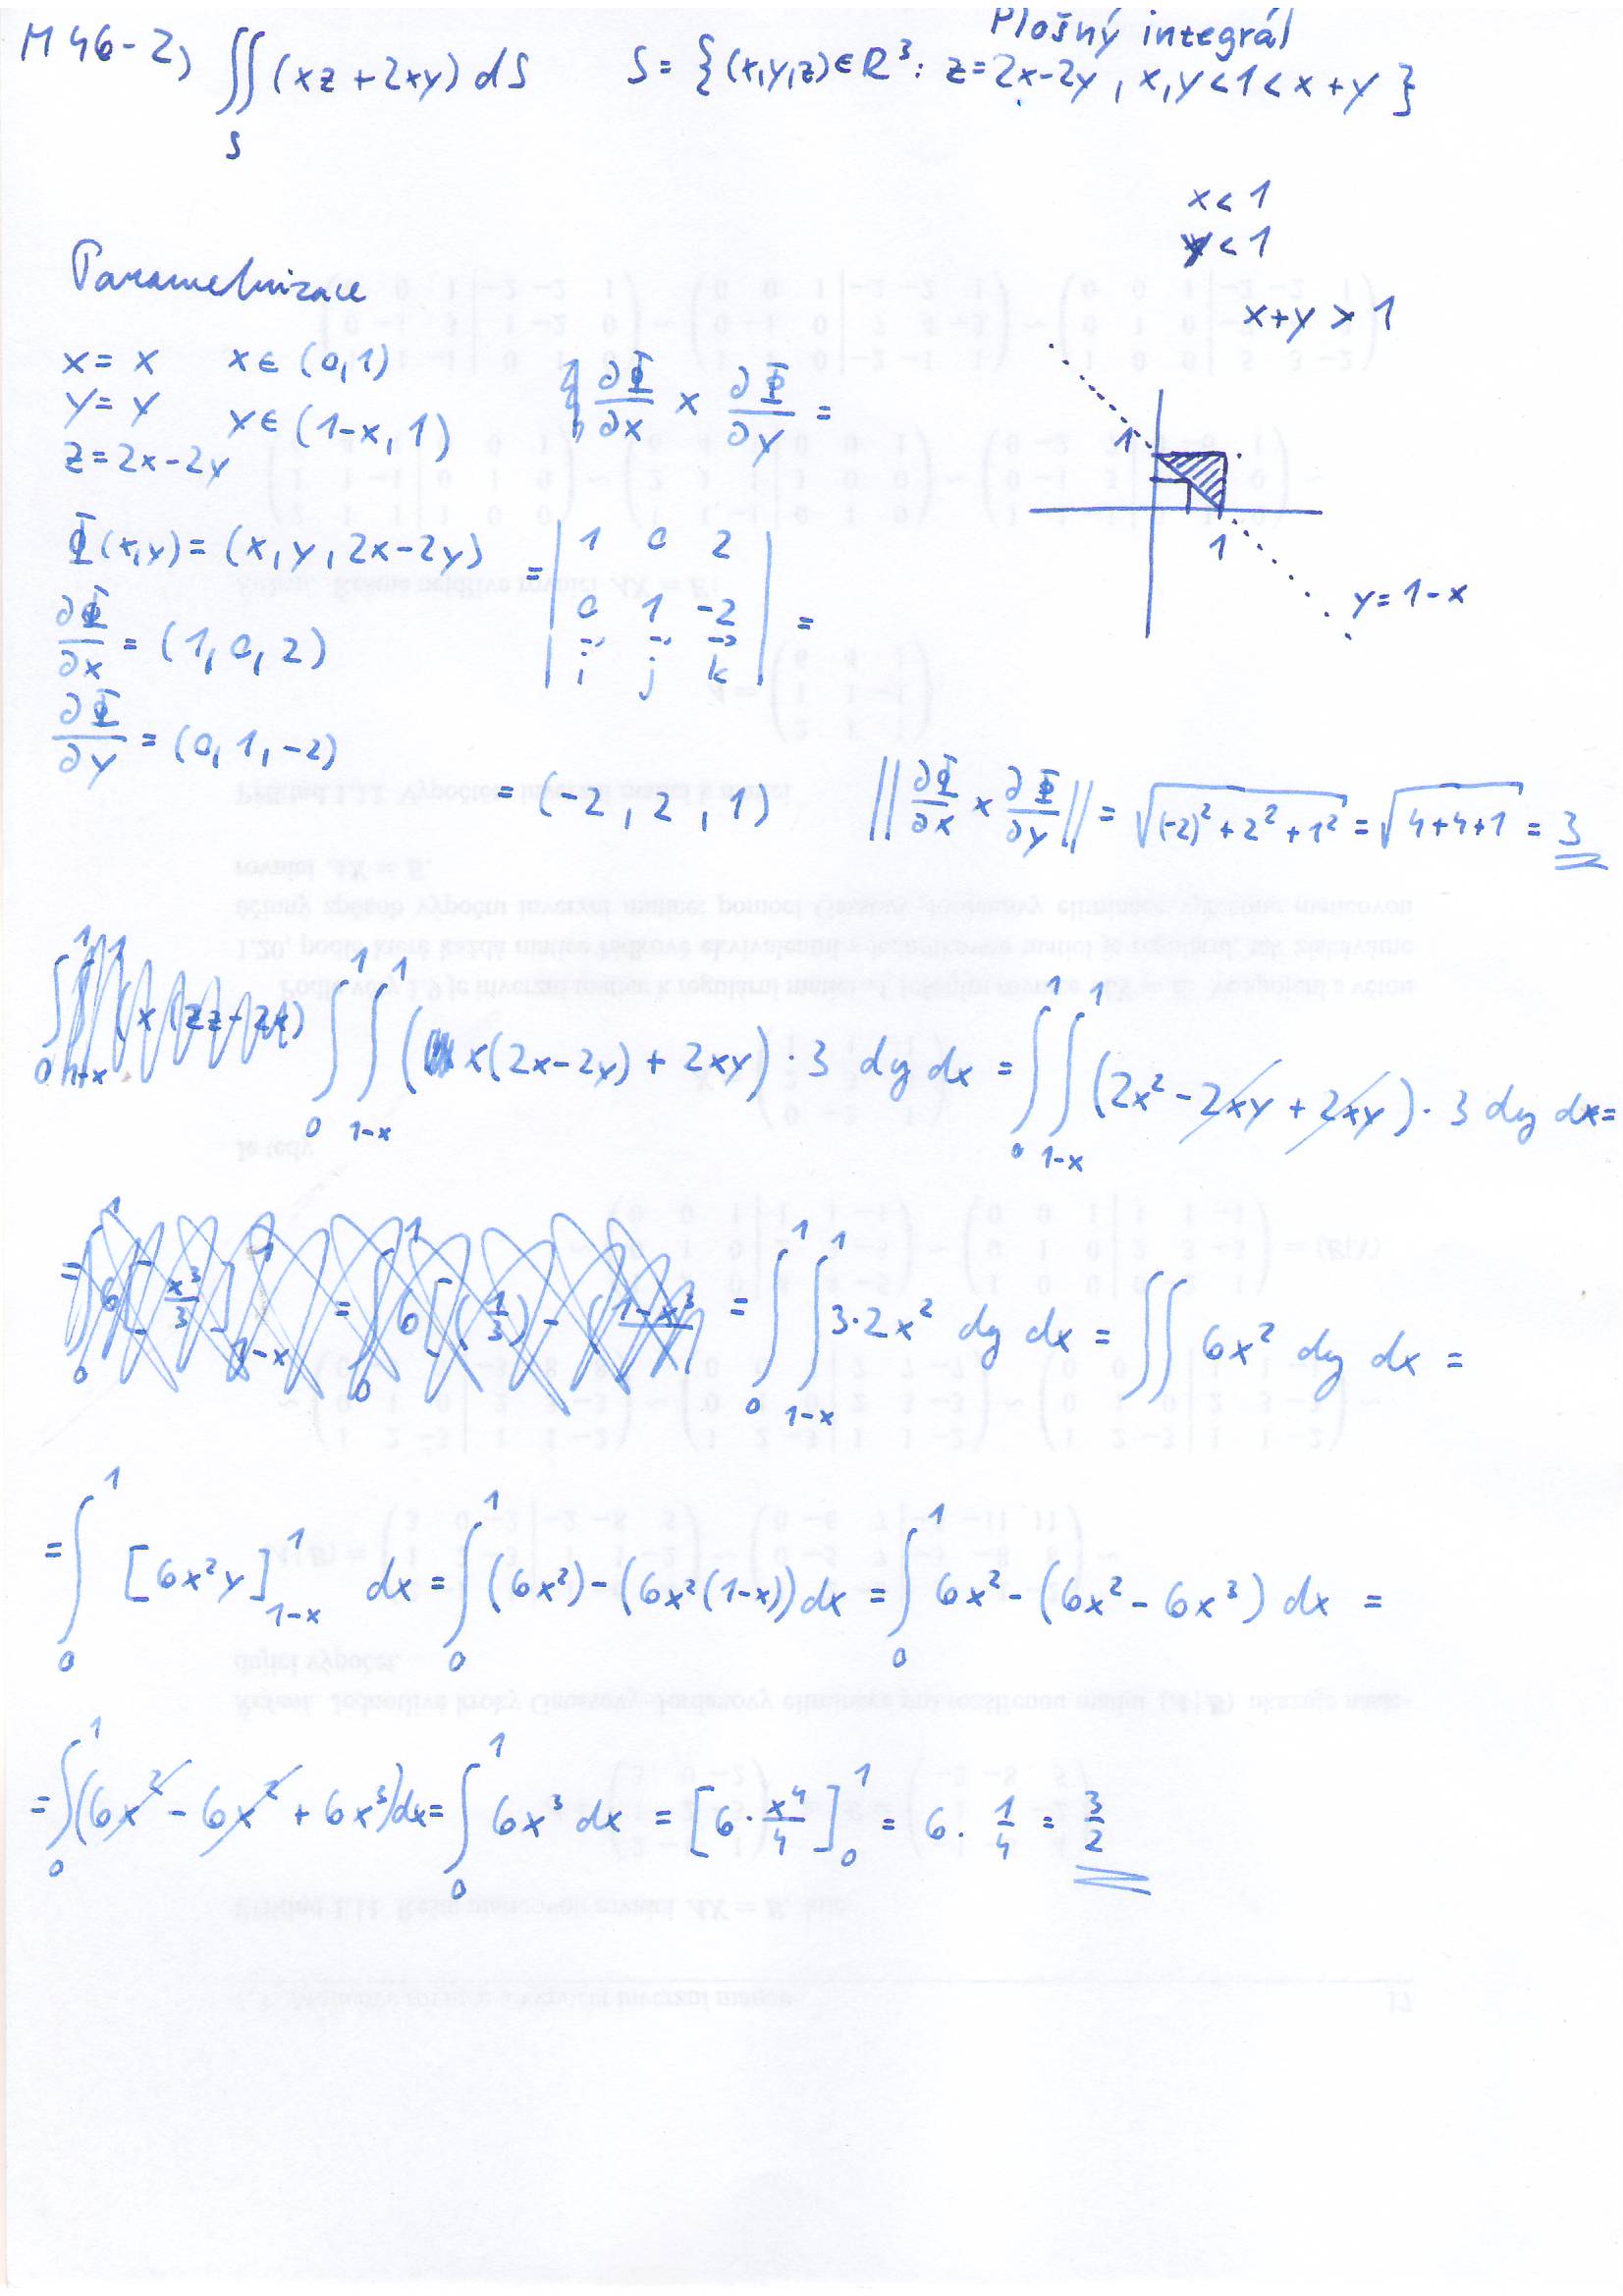 Plošný integrál
M46-2) ∬_S (xz + 2xy) dS    S = {(x,y,z) ∈ R³: z = 2x-2y, x,y < 1 < x+y}
x < 1
y < 1
x+y > 1
Parametrizace
x = x    x ∈ (0,1)
y = y    y ∈ (1-x, 1)
z = 2x-2y
∂Φ/∂x × ∂Φ/∂y =
1
1
y = 1-x
Φ(x,y) = (x, y, 2x-2y)
∂Φ/∂x = (1, 0, 2)
∂Φ/∂y = (0, 1, -2)
= | 1 0 2 |
| 0 1 -2 | =
| i j k |
= (-2, 2, 1)    ||∂Φ/∂x × ∂Φ/∂y|| = √((-2)² + 2² + 1²) = √(4+4+1) = 3
∫_0^1 ∫_{1-x}^1 (x(2x-2y) + 2xy) · 3 dy dx = ∫_0^1 ∫_{1-x}^1 (2x² - 2xy + 2xy) · 3 dy dx =
= ∫_0^1 ∫_{1-x}^1 3·2x² dy dx = ∬ 6x² dy dx =
= ∫_0^1 [6x²y]_{1-x}^1 dx = ∫_0^1 (6x²) - (6x²(1-x)) dx = ∫_0^1 6x² - (6x² - 6x³) dx =
= ∫_0^1 (6x² - 6x² + 6x³) dx = ∫_0^1 6x³ dx = [6 · x⁴/4]_0^1 = 6 · 1/4 = 3/2